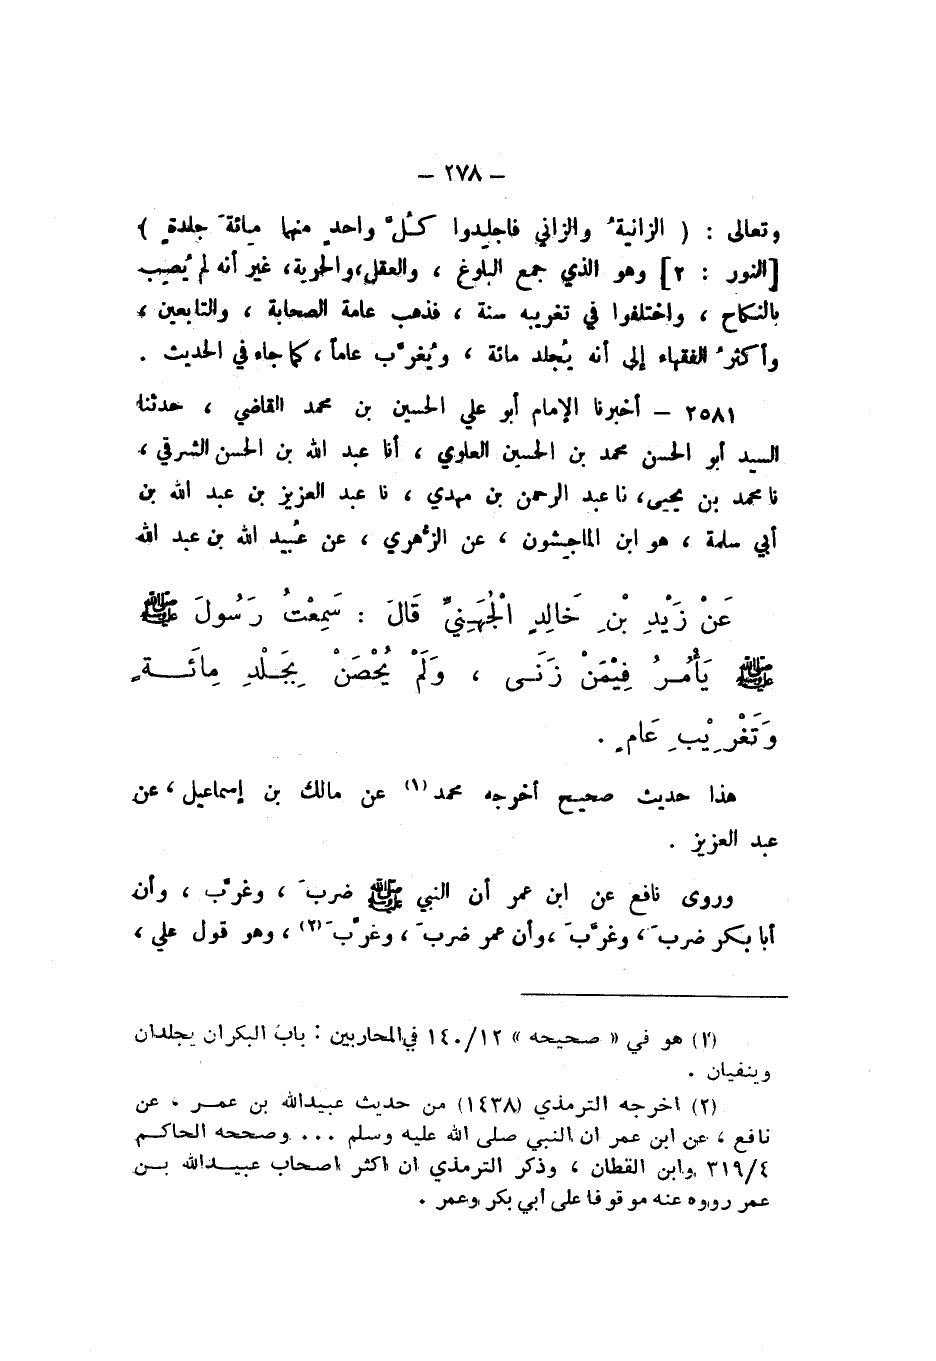 – ٢٧٨ –
وتعالى : ( الزانيةُ والزاني فاجلِدوا كُلَّ واحدٍ منهما مِائةَ جلدةٍ )
[النور : ٢] وهو الذي جمع البلوغ ، والعقل،والحرية، غير أنه لم يُصِب
بالنكاح ، واختلفوا في تغريبه سنة ، فذهب عامة الصحابة ، والتابعين ،
وأكثرُ الفقهاء إلى أنه يُجلد مائة ، ويُغرَّب عاماً ، كما جاء في الحديث .
٢٥٨١ – أخبرنا الإمام أبو علي الحسين بن محمد القاضي ، حدثنا
السيد أبو الحسن محمد بن الحسين العلوي ، أنا عبد الله بن الحسن الشرقي ،
نا محمد بن يحيى، نا عبد الرحمن بن مهدي ، نا عبد العزيز بن عبد الله بن
أبي سلمة ، هو ابن الماجشون ، عن الزُّهري ، عن عُبيد الله بن عبد الله
عَنْ زَيْدِ بْنِ خَالِدٍ الْجُهَنِيِّ قَالَ : سَمِعْتُ رَسُولَ ﷺ
ﷺ يَأْمُرُ فِيْمَنْ زَنَى ، وَلَمْ يُحْصَنْ بِجَلْدِ مِائَةٍ
وَتَغْرِيْبِ عَامٍ .
هذا حديث صحيح أخرجه محمد (١) عن مالك بن إسماعيل ، عن
عبد العزيز .
وروى نافع عن ابن عمر أن النبي ﷺ ضربَ ، وغرَّب ، وأن
أبا بكر ضربَ ، وغرَّبَ ،وأن عمر ضربَ ، وغرَّبَ (٢) ، وهو قول علي ،
(١) هو في « صحيحه » ١٤٠/١٢ في المحاربين : باب البكران يجلدان
وينفيان .
(٢) اخرجه الترمذي (١٤٣٨) من حديث عبيدالله بن عمر . عن
نافع ، عن ابن عمر ان النبي صلى الله عليه وسلم ... وصححه الحاكم
٣١٩/٤ وابن القطان ، وذكر الترمذي ان اكثر اصحاب عبيدالله بن
عمر رووه عنه موقوفا على أبي بكر وعمر .